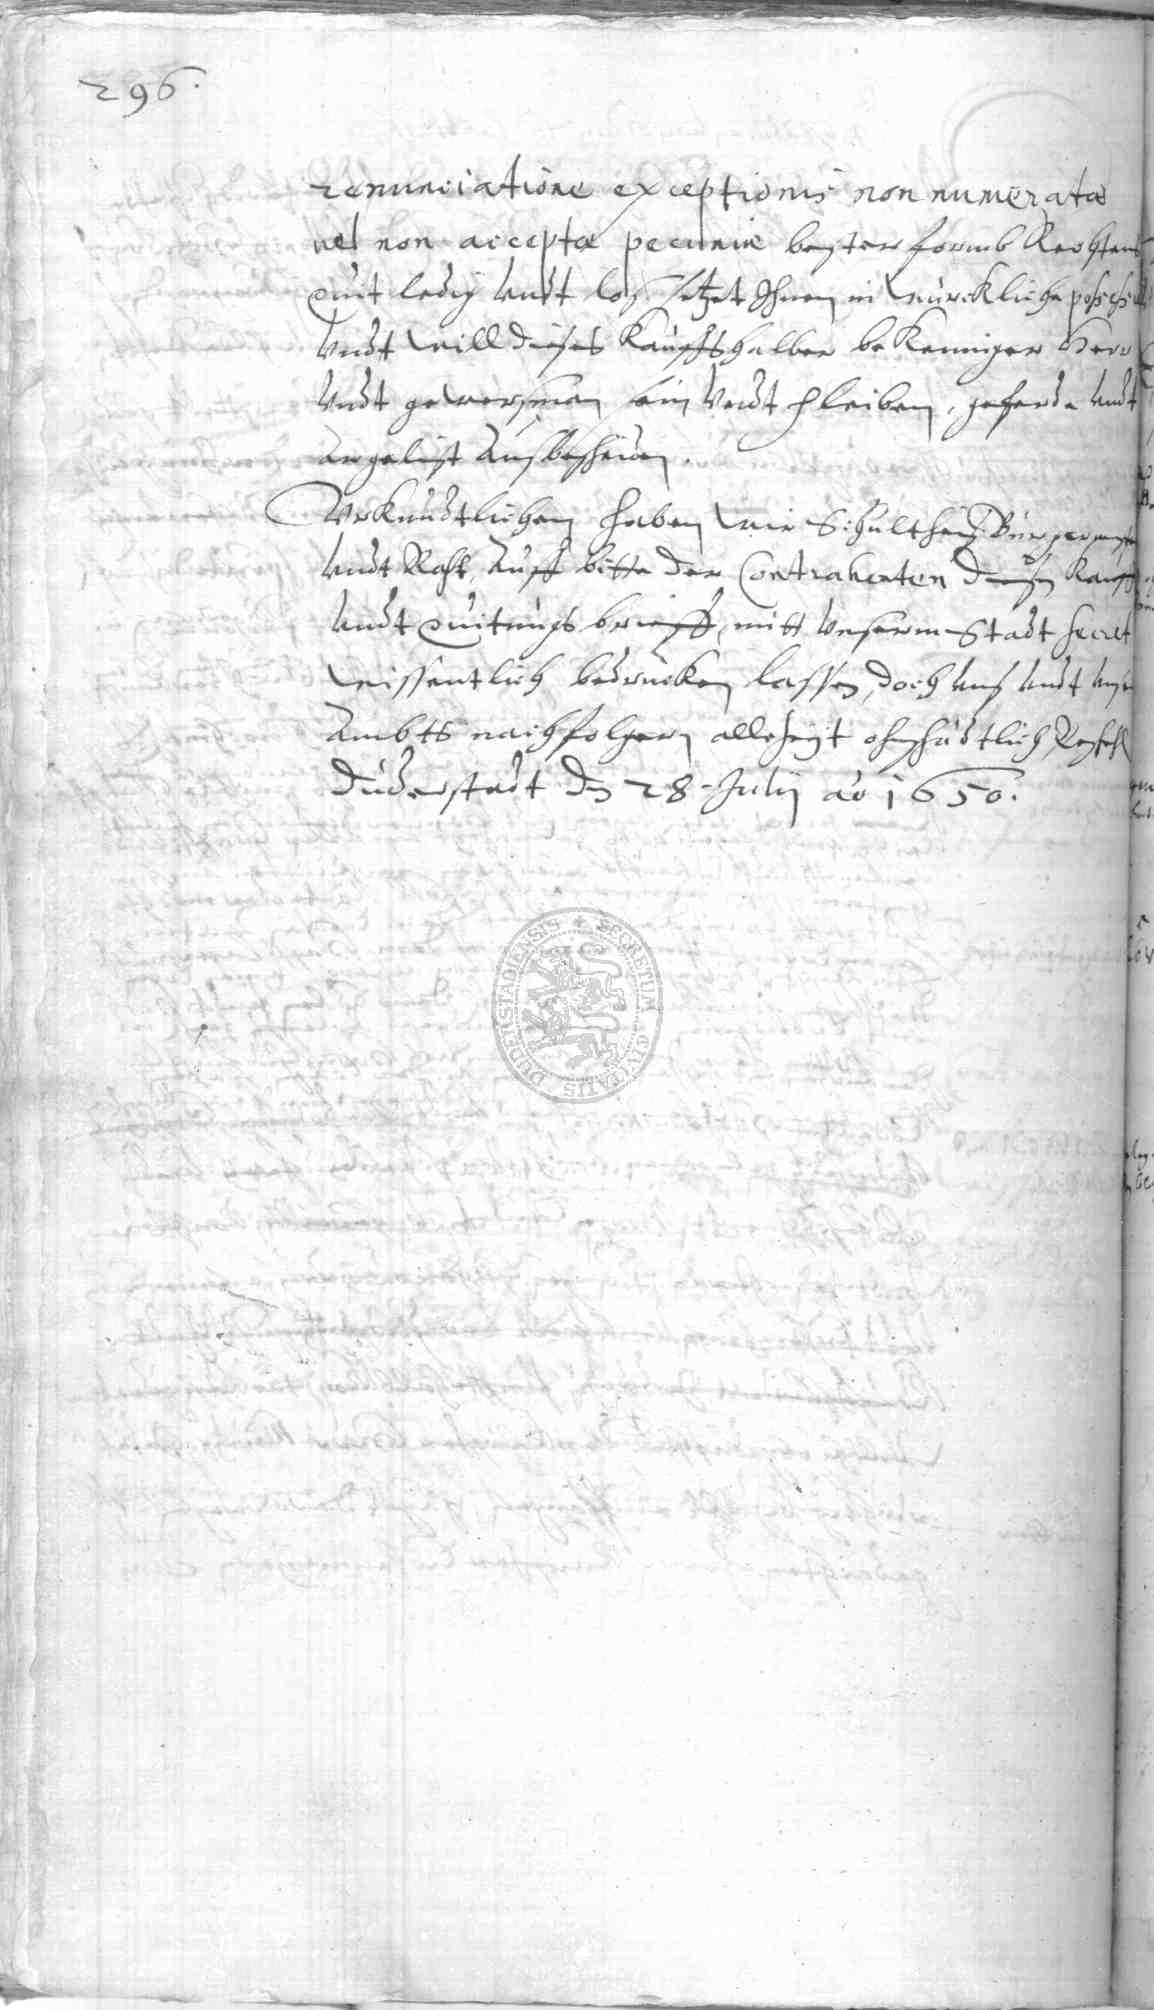 296.
renunciatione exceptionis non numeratæ
vel non acceptæ pecuniæ bester formb Rechtens
quit ledig undt loß, setzet Ihnen in würckliche possess
Undt will dieses Kauffs halber bekenniger Herr
Undt gewersman sein Undt pleiben, geferde undt
argelist Außbescheiden.
Urkundtlichen haben wir Schultheiß Bürgermeister
undt Raht, Auff bitte der Contrahenten diesen Kauff
undt quitungs brieff, mitt Unserm Stadt secret
wissentlich bedrucken lassen, doch unß undt unsern
Ambts nachfolgern allezeit ohnschädtlich,
Duderstadt den 28. July ao 1650.
SECRETUM CIVITATIS DUDERSTADIENSIS